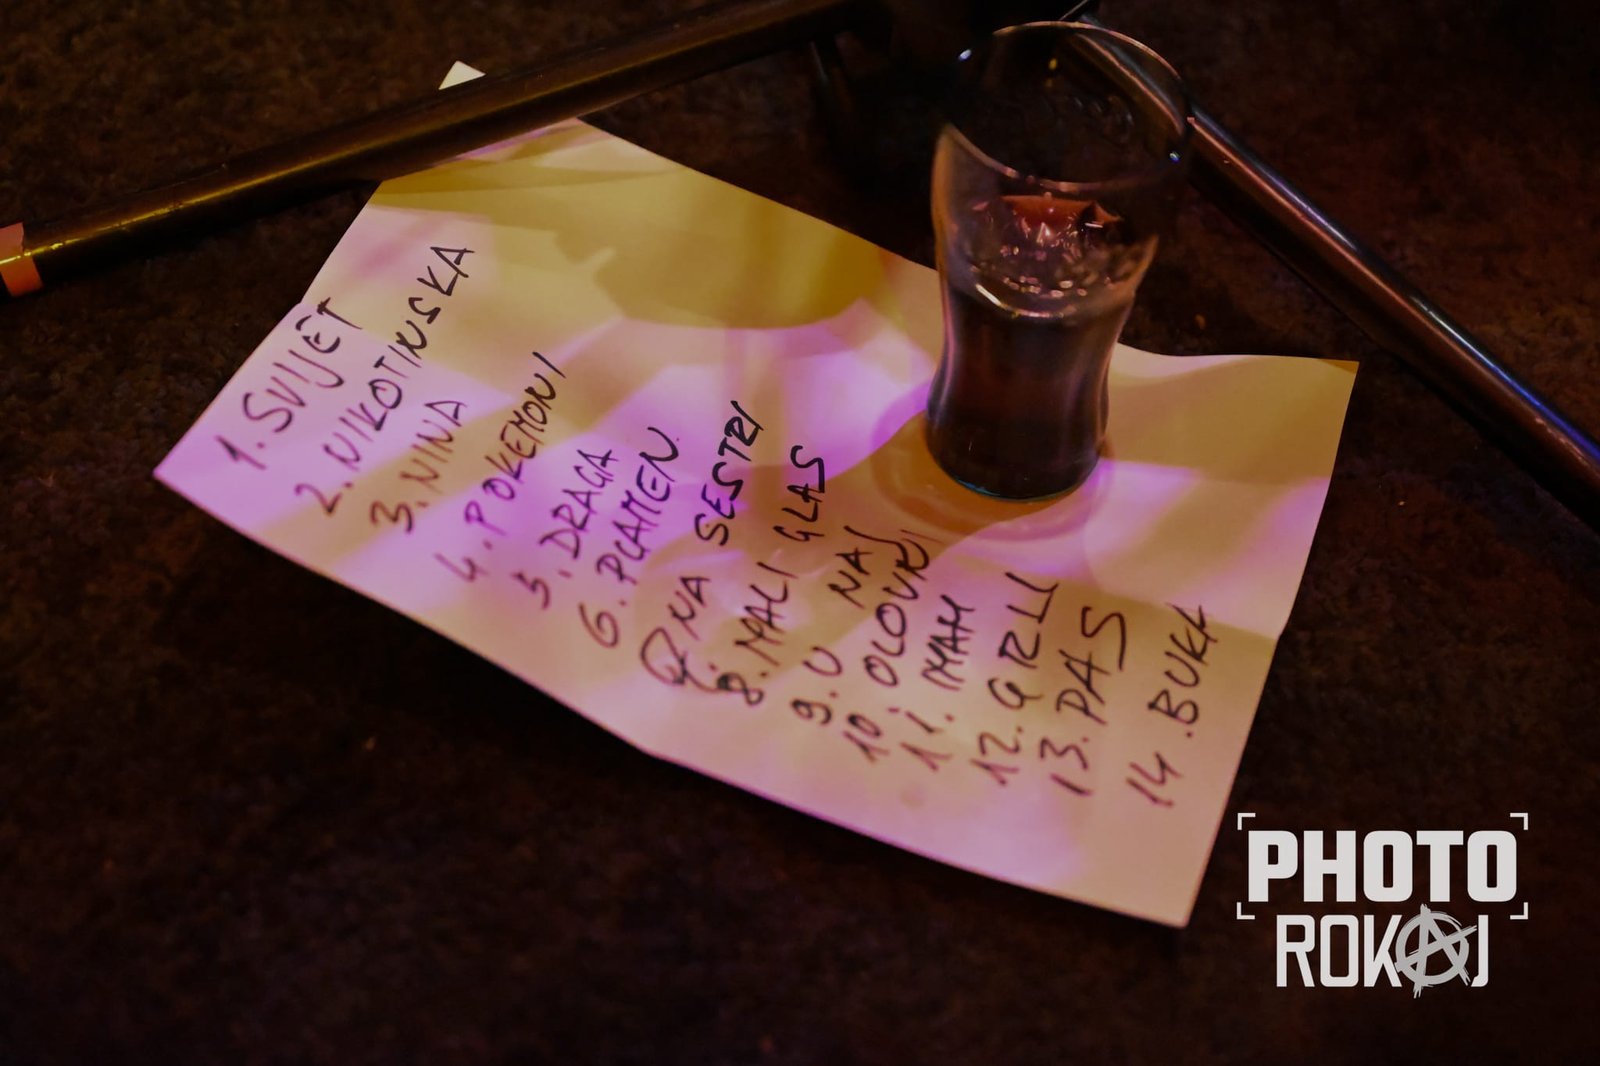 1. SVIJET
2. NIKOTINSKA
3. NINA
4. POKEMONI
5. DRAGA
6. PLAMEN
7. NA SESTRI
8. MALI GLAS
9. U NAS
10 OLOVNI
11. IMAM
12. GRLI
13. PAS
14. BUKA
PHOTO
ROKAJ